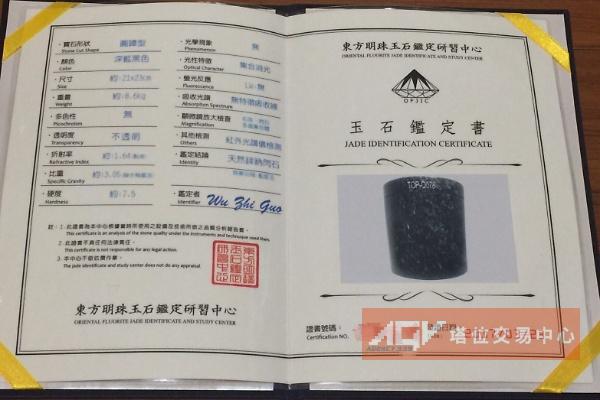 ・寶石形狀
Stone Cut Shape
圓罈型
・顏色
Color
深藍黑色
・尺寸
Size
約:21x23cm
・重量
Weight
約:8.6kg
・多色性
Pleochroism
無
・透明度
Transparency
不透明
・折射率
Refractive Index
約:1.64
・比重
Specific Gravity
約:3.05
・硬度
Hardness
約:7.5
・光學現象
Phenomenon
無
・光性特徵
Optical Character
集合消光
・螢光反應
Fluorescence
・吸收光譜
Absorption Spectrum
無特徵吸收線
・顯微鏡放大檢查
Magnification
・其他檢測
Others
紅外光譜儀檢測
・鑑定結論
Identity
・鑑定者
Identifier
Wu Zhi Guo
註：1. 此證書為本中心根據當時所使用之設備及技術所做之品質分析報告書。
This certificate is an analysis of the stone quality under the instruments and technique used then.
2. 此證書不具任何法律責任。
This certificate is not responsible for any legal action.
3. 本中心不做估價作業。
The jade identificate and study center does not do any appraisal.
東方明珠玉石鑑定研習中心
ORIENTAL FLUORITE JADE IDENTIFICATE AND STUDY CENTER
東方明珠玉石鑑定研習中心
ORIENTAL FLUORITE JADE IDENTIFICATE AND STUDY CENTER
OFJIC
玉石鑑定書
JADE IDENTIFICATION CERTIFICATE
TOP-Q078
證書號碼：
Certification NO.
AGV 塔位交易中心